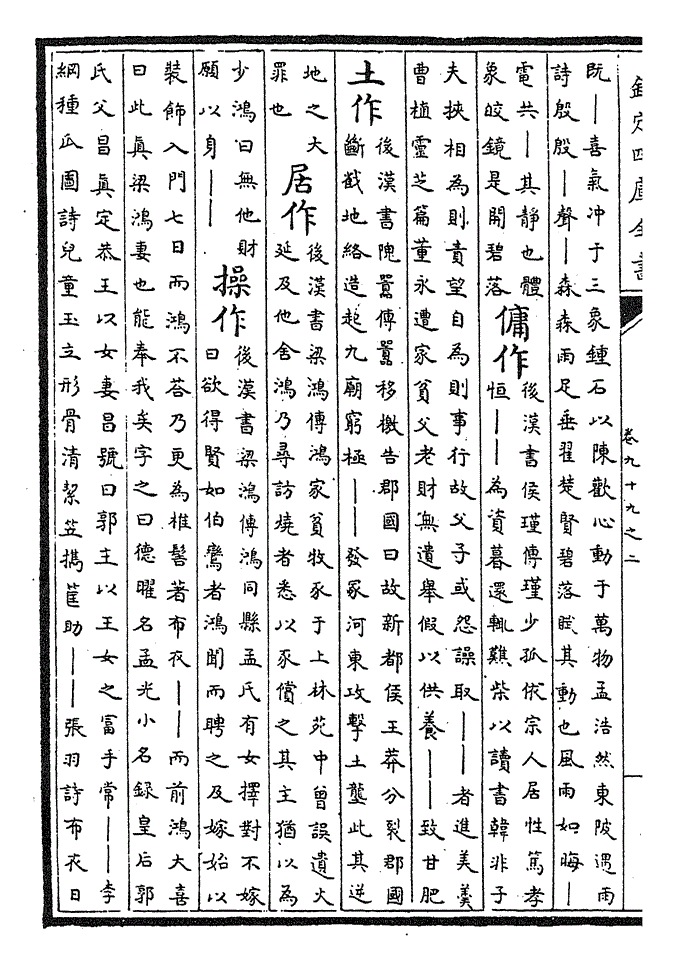 欽定四庫全書
卷九十九之二
既｜喜氣冲于三象鍾石以陳歡心動于萬物孟浩然東陂遇雨
詩殷殷｜聲｜森森雨足垂翟楚賢碧落賦其動也風雨如晦｜
電共｜其靜也體
象皎鏡是開碧落
傭作
後漢書侯瑾傳瑾少孤依宗人居性篤孝
恒｜｜為資暮還輒難柴以讀書韓非子
夫挾相為則責望自為則事行故父子或怨譟取｜｜者進美羮
曹植靈芝篇董永遭家貧父老財無遺舉假以供養｜｜致甘肥
土作
後漢書隗囂傳囂移檄告郡國曰故新都侯王莽分裂郡國
斷截地絡造起九廟窮極｜｜發冢河東攻擊土壟此其逆
地之大
罪也
居作
後漢書梁鴻傳鴻家貧牧豕于上林苑中曾誤遺火
延及他舍鴻乃尋訪燒者悉以豕償之其主猶以為
少鴻曰無他財
願以身｜｜
操作
後漢書梁鴻傳鴻同縣孟氏有女擇對不嫁
曰欲得賢如伯鸞者鴻聞而聘之及嫁始以
裝飾入門七日而鴻不答乃更為椎髻著布衣｜｜而前鴻大喜
曰此真梁鴻妻也能奉我矣字之曰德曜名孟光小名錄皇后郭
氏父昌真定恭王以女妻昌號曰郭主以王女之富手常｜｜李
綱種瓜圖詩兒童玉立形骨清絜笠攜筐助｜｜張羽詩布衣日